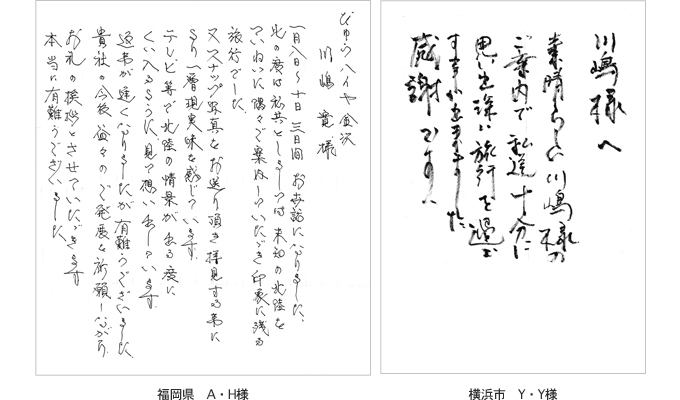 びゅうハイヤ金沢
川嶋 寛 様
一月八日〜十日 三日間 お世話になりました。
此の度は私共としましては未知の北陸を
ていねいに隅々ご案内していただき印象に残る
旅行でした。
又スナップ写真をお送り頂き拝見する事に
より一層現実味を感じています。
テレビ等で北陸の情景が出る度に
くい入るように見て想い出しています。
返事が遅くなりましたが有難うございました。
貴社の今後益々のご発展を祈願しながら
お礼の挨拶とさせていただきます
本当に有難うございました。
川嶋様へ
素晴らしい川嶋様の
ご案内で私達十分に
思い出深い旅行を過ご
す事が出来ました。
感謝です!!
福岡県 A・H様
横浜市 Y・Y様